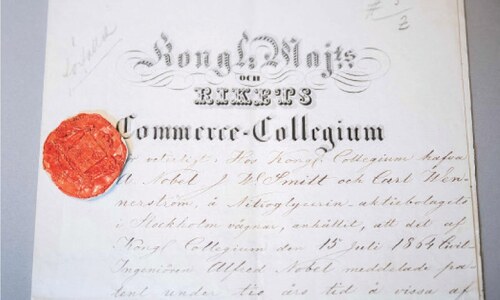 Kongl. Majts
OCH
RIKETS
Commerce-Collegium
Hos Kongl. Collegium hafva
A. Nobel, J. W. Smitt och Carl Wen-
nerström, å Nitroglycerin-aktiebolagets
i Stockholm vägnar, anhållit, att det af
Kongl. Collegium den 15 Juli 1864
Ingeniören Alfred Nobel meddelade pa-
tent under tio års tid å vissa af